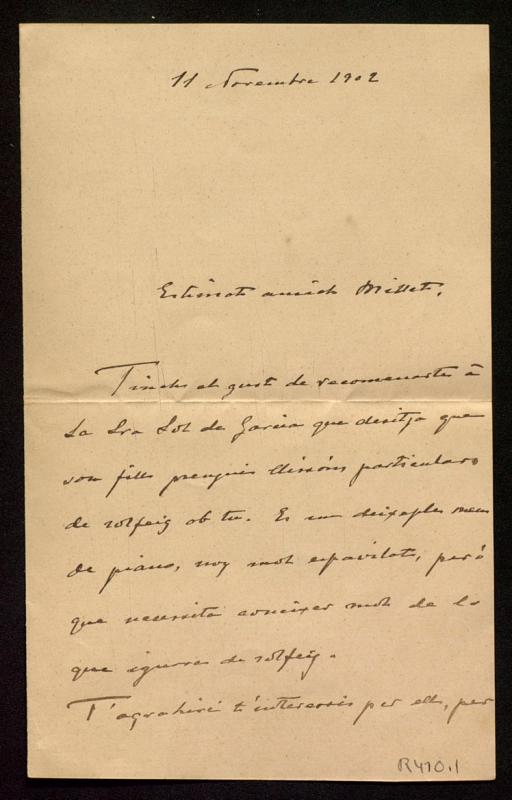 11 Novembre 1902
Estimat amich Millet,
Tinch el gust de recomenarte à
la Sra Sol de Garcia que desitja que
son fill prenguis llissóns particulars
de solfeig ab tu. Es un deixeple meu
de piano, noy molt espavilat, peró
que necessita coneixer mol de lo
que ignora de solfeig.
T'agrahiré t'interessis per ell, per
R410.1